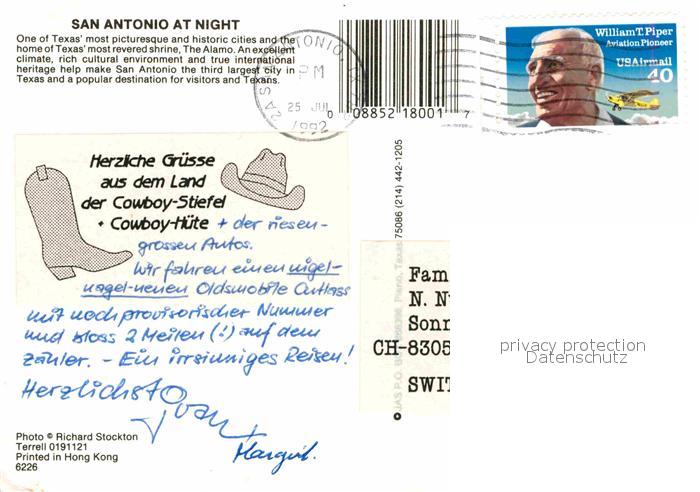 SAN ANTONIO AT NIGHT
One of Texas' most picturesque and historic cities and the
home of Texas' most revered shrine, The Alamo. An excellent
climate, rich cultural environment and true international
heritage help make San Antonio the third largest city in
Texas and a popular destination for visitors and Texans.
PM
25 JUL
1992
0 08852 18001 7
William T. Piper
Aviation Pioneer
USAirmail
40
Herzliche Grüsse
aus dem Land
der Cowboy-Stiefel
+ Cowboy-Hüte + der riesen-
grossen Autos.
Wir fahren einen nigel-
nagel-neuen Oldsmobile Cutlass
mit noch provisorischer Nummer
und bloss 2 Meilen (!) auf dem
Zähler. – Ein irrsinniges Reisen!
Herzlichst
Margrit.
75086 (214) 442-1205
Plano, Texas
Fam
N. N
Sonn
CH-8305
SWIT
privacy protection
Datenschutz
Photo © Richard Stockton
Terrell 0191121
Printed in Hong Kong
6226